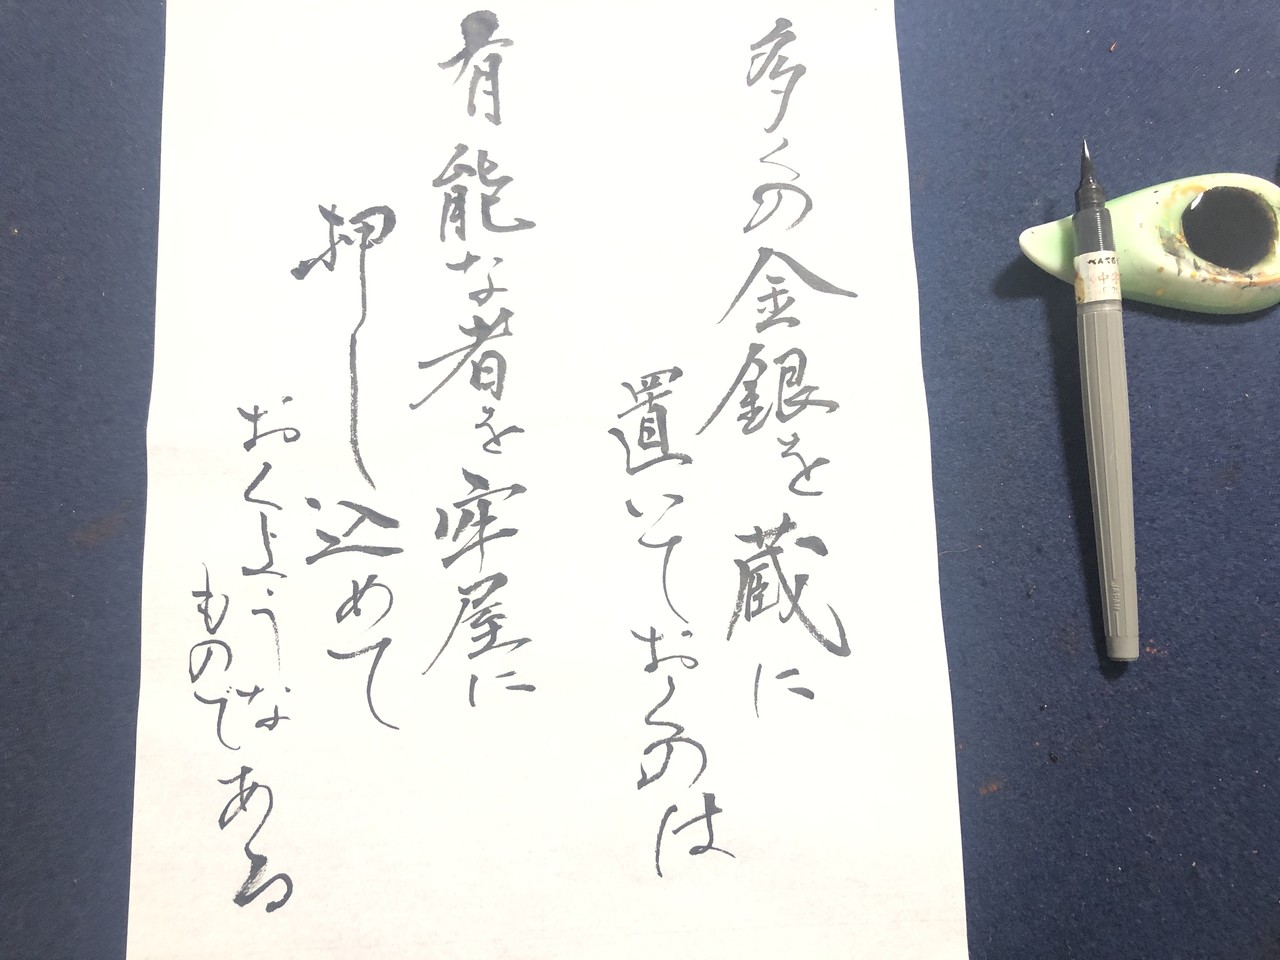 多くの金銀を蔵に
置いておくのは
有能な者を牢屋に
押し込めて
おくような
ものである
JAPAN